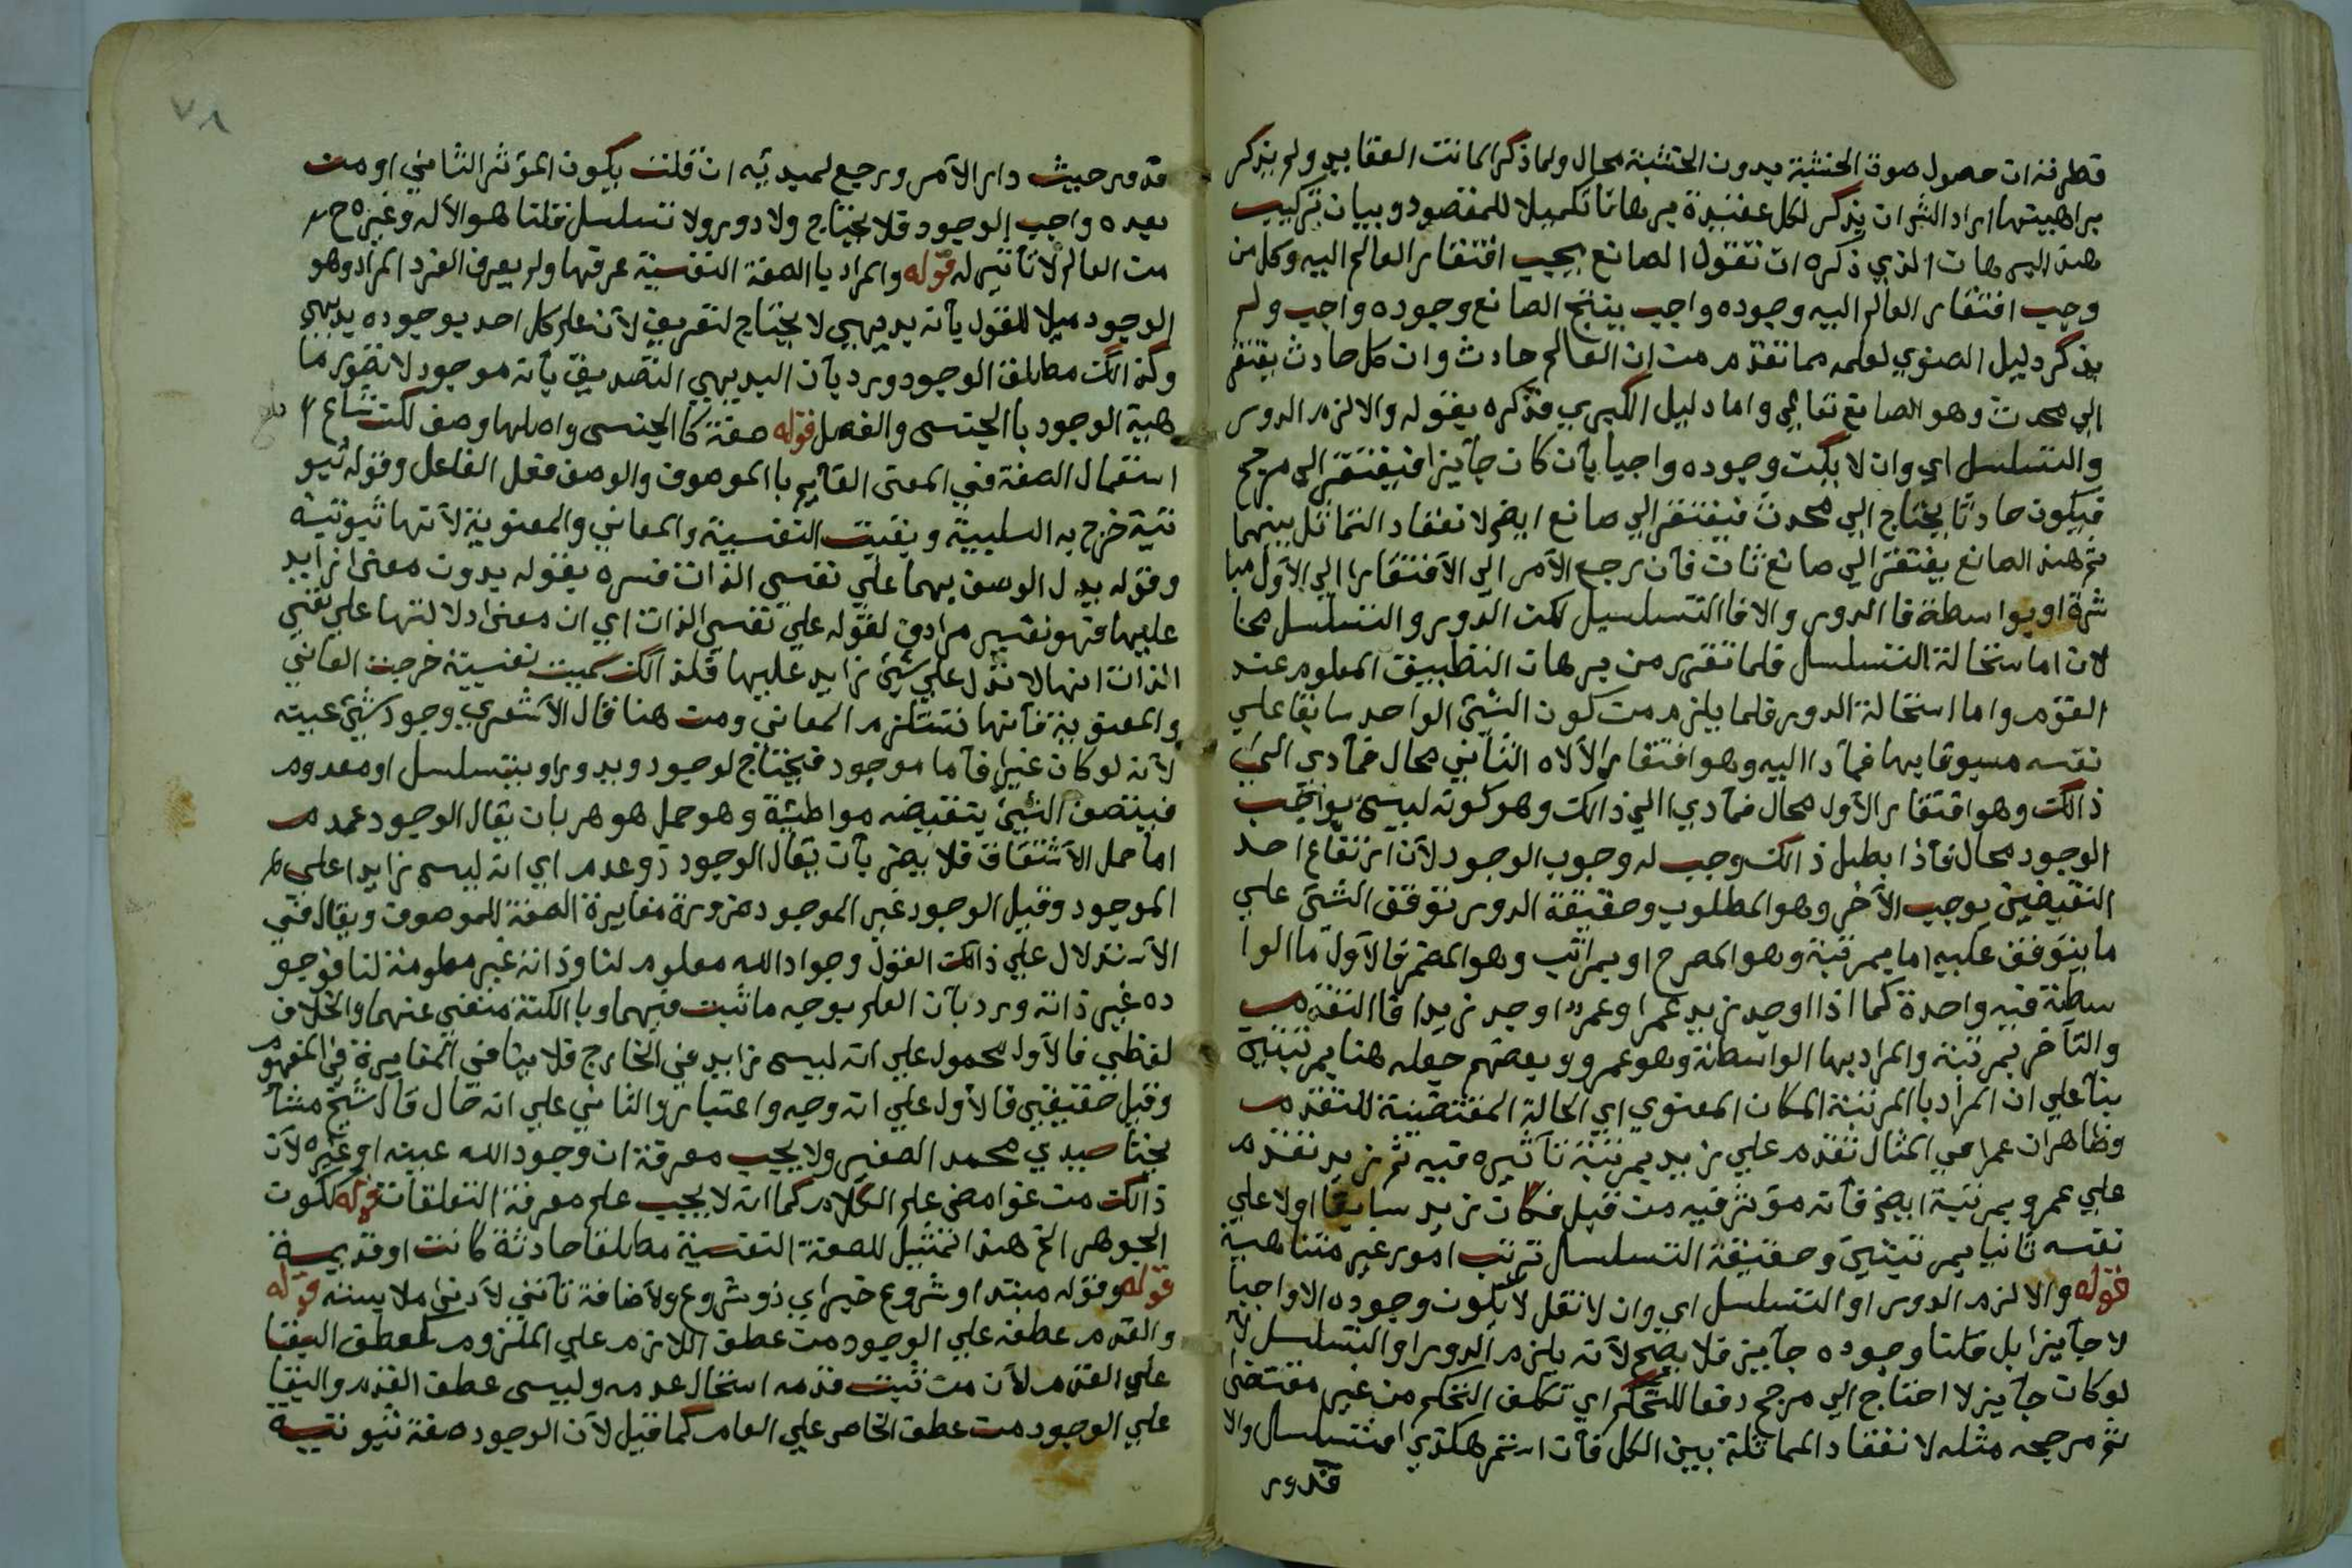 قطر فنه ان حصول صوة الخشبة بدون الخشبة محال ولما ذكر الما نت العقايد ولم يذكر
براهينها اراد الشر ان يذكر لكل عقيدة برهانا تكميلا للمقصود وبيان تركيب
هند البرهان الذي ذكره ان تقول الصانع يجب افتقار العالم اليه وكل من
وجب افتقار العالم اليه وجوده واجب ينتج الصانع وجوده واجب ولم
يذكر دليل الصغري لعلمه مما تقدم من ان العالم حادث وان كل حادث يفتقر
الي محدث وهو الصانع تعالي واما دليل الكبري فذكره بقوله والا لزم الدور
والتسلسل اي وان لا يكن وجوده واجبا بأن كان جآيزا فيفتقر الي مرجح
فيكون حادثا يحتاج الي محدث فيفتقر الي صانع ايضا لانعقاد التماثل بينهما
ثم هند الصانع يفتقر الي صانع ثان فآن رجع الآمر الي الآفتقار الي الآول مبا
شرة او بواسطة فا الدور والا فا التسلسل لكن الدور والتسلسل محا
لان اما ستحالة التسلسل فلما تقرر من برهان التطبيق المعلوم عند
القوم واما استحالة الدور فلما يلزم من كون الشئ الواحد سابقا علي
نفسه مسبوقا بها فمآ دا اليه وهو افتقار الألاه الثآني محال فمآدي الي
ذالك وهو افتقار الآول محال فمآدي االي ذالك وهو كونه ليس بواجب
الوجود محال فآذا بطل ذالك وجب له وجوب الوجود لآن ارتفاع احد
النقيضين يوجب الآخر وهو المطلوب وحقيقة الدور توقف الشئ علي
ما يتوقف عليه اما بمرتبة وهو المصرح او بمراتب وهو المضمر فالآول ما الوا
سطة فيه واحدة كما اذا اوجد زيد عمرا وعمر اوجد زيدا فا التقدم
والتآخر بمرتبة والمراد بها الواسطة وهو عمرو وبعضهم جعله هنا بمرتبتين
بنآ علي ان المراد با المرتبة المكان المعنوي اي الحالة المقتضية للتقدم
وظاهر ان عمرا في المثال تقدم علي زيد بمرتبة تآثيره فيه ثم زيد تقدم
علي عمرو بمرتبة ايضا فآنه مؤثر فيه من قبل فكان زيد سابقا اولا علي
نفسه ثانيا بمرتبتين وحقيقة التسلسل ترتب امور غير متناهية
قوله والا لزم الدور او التسلسل اي وان لا نقل لا يكون وجوده الا واجبا
لا جآيزا بل قلنا وجوده جآيز فلا يصح لآنه يلزم الدور او التسلسل لآنه
لو كان جآيز لا احتاج الي مرجح دفعا للتحكم اي تكلف التحكم من غير مقتضى
ثم مرجحه مثله لا نعقاد المماثلة بين الكل فآن استمر هكذي افتسلسل والا
فدور
٧٨
قدور حيث دار الآمر ورجع لمبدئه ان قلت يكون المؤثر الثاني او من
بعده واجب الوجود فلا يحتاج ولا دور ولا تسلسل قلنا هو الآله وغيره ح
من العالم لا تآثير له قوله والمراد با الصفة النفسية عرفها ولم يعرف الفرد المراد وهو
الوجود ميلا للقول بآنه بديهي لا يحتاج لتعريف لآن علم كل احد بوجوده بديهي
وكذالك مطلق الوجود ورد بآن البديهي التصديق بآنه موجود لا تصور ما
هية الوجود با الجنس والفصل قوله صفة كا الجنس واصلها وصف لكن شاع
استعمال الصفة في المعنى القآيم با الموصوف والوصف فعل الفاعل وقوله ثبو
تية خرج به السلبية وبقيت النفسية والمعاني والمعنوية لآنها ثبوتية
وقوله يدل الوصف بهما علي نفس الذات فسره بقوله بدون معنى زايد
عليها فهو تفسير مرادف لقوله علي نفس الذات اي ان معنى دلالتها علي نفس
الذات انها لا تدل علي شئ زايد عليها فلذالك سميت نفسية خرجت المعاني
والمعنوية فآنها تستلزم المعاني ومن هنا قال الآشعري وجود شئ عينه
لآنه لو كان غيرا فآما موجود فيحتاج لوجود ويدور او يتسلسل او معدوم
فيتصف الشئ بنقيضه مواطئة وهو حمل هو هو بان يقال الوجود عدم
اما حمل الآشتقاق فلا يضر بآن يقال الوجود ذو عدم اي انه ليس زايدا علي
الموجود وقيل الوجود غير الموجود ضرورة مغايرة الصفة للموصوف ويقال في
الآستدلال علي ذالك القول وجواد الله معلوم لنا وذاته غير معلومة لنا فوجو
ده غير ذاته ورد بآن العلم بوجه ما ثبت فيهما وبا الكنه منتفي عنهما والخلاف
لفظي فالآول محمول علي انه ليس زايد في الخارج فلا ينافي المغايرة في المفهوم
وقيل حقيقي فالآول علي انه وجه واعتبار والثاني علي انه حال قال شيخ مشآ
يخنا سيدي محمد الصغير ولا يجب معرفة ان وجود الله عينه او غيره لآن
ذالك من غوامض علم الكلام كما انه لا يجب علم معرفة التعلقات قوله ككون
الجوهر الخ هند اتمثيل للصفة النفسية مطلقا حادثة كانت او قديمة
قوله وقوله مبتدا وشروع خبر اي ذو شروع ولآضافة تآتي لآدنى ملابسة قوله
والقدم عطفه علي الوجود من عطف اللازم علي الملزوم كعطف البقا
علي القدم لآن من ثبت قدمه استحال عدمه وليس عطف القدم والبقا
علي الوجود من عطف الخاص علي العام كما قيل لآن الوجود صفة ثبوتية